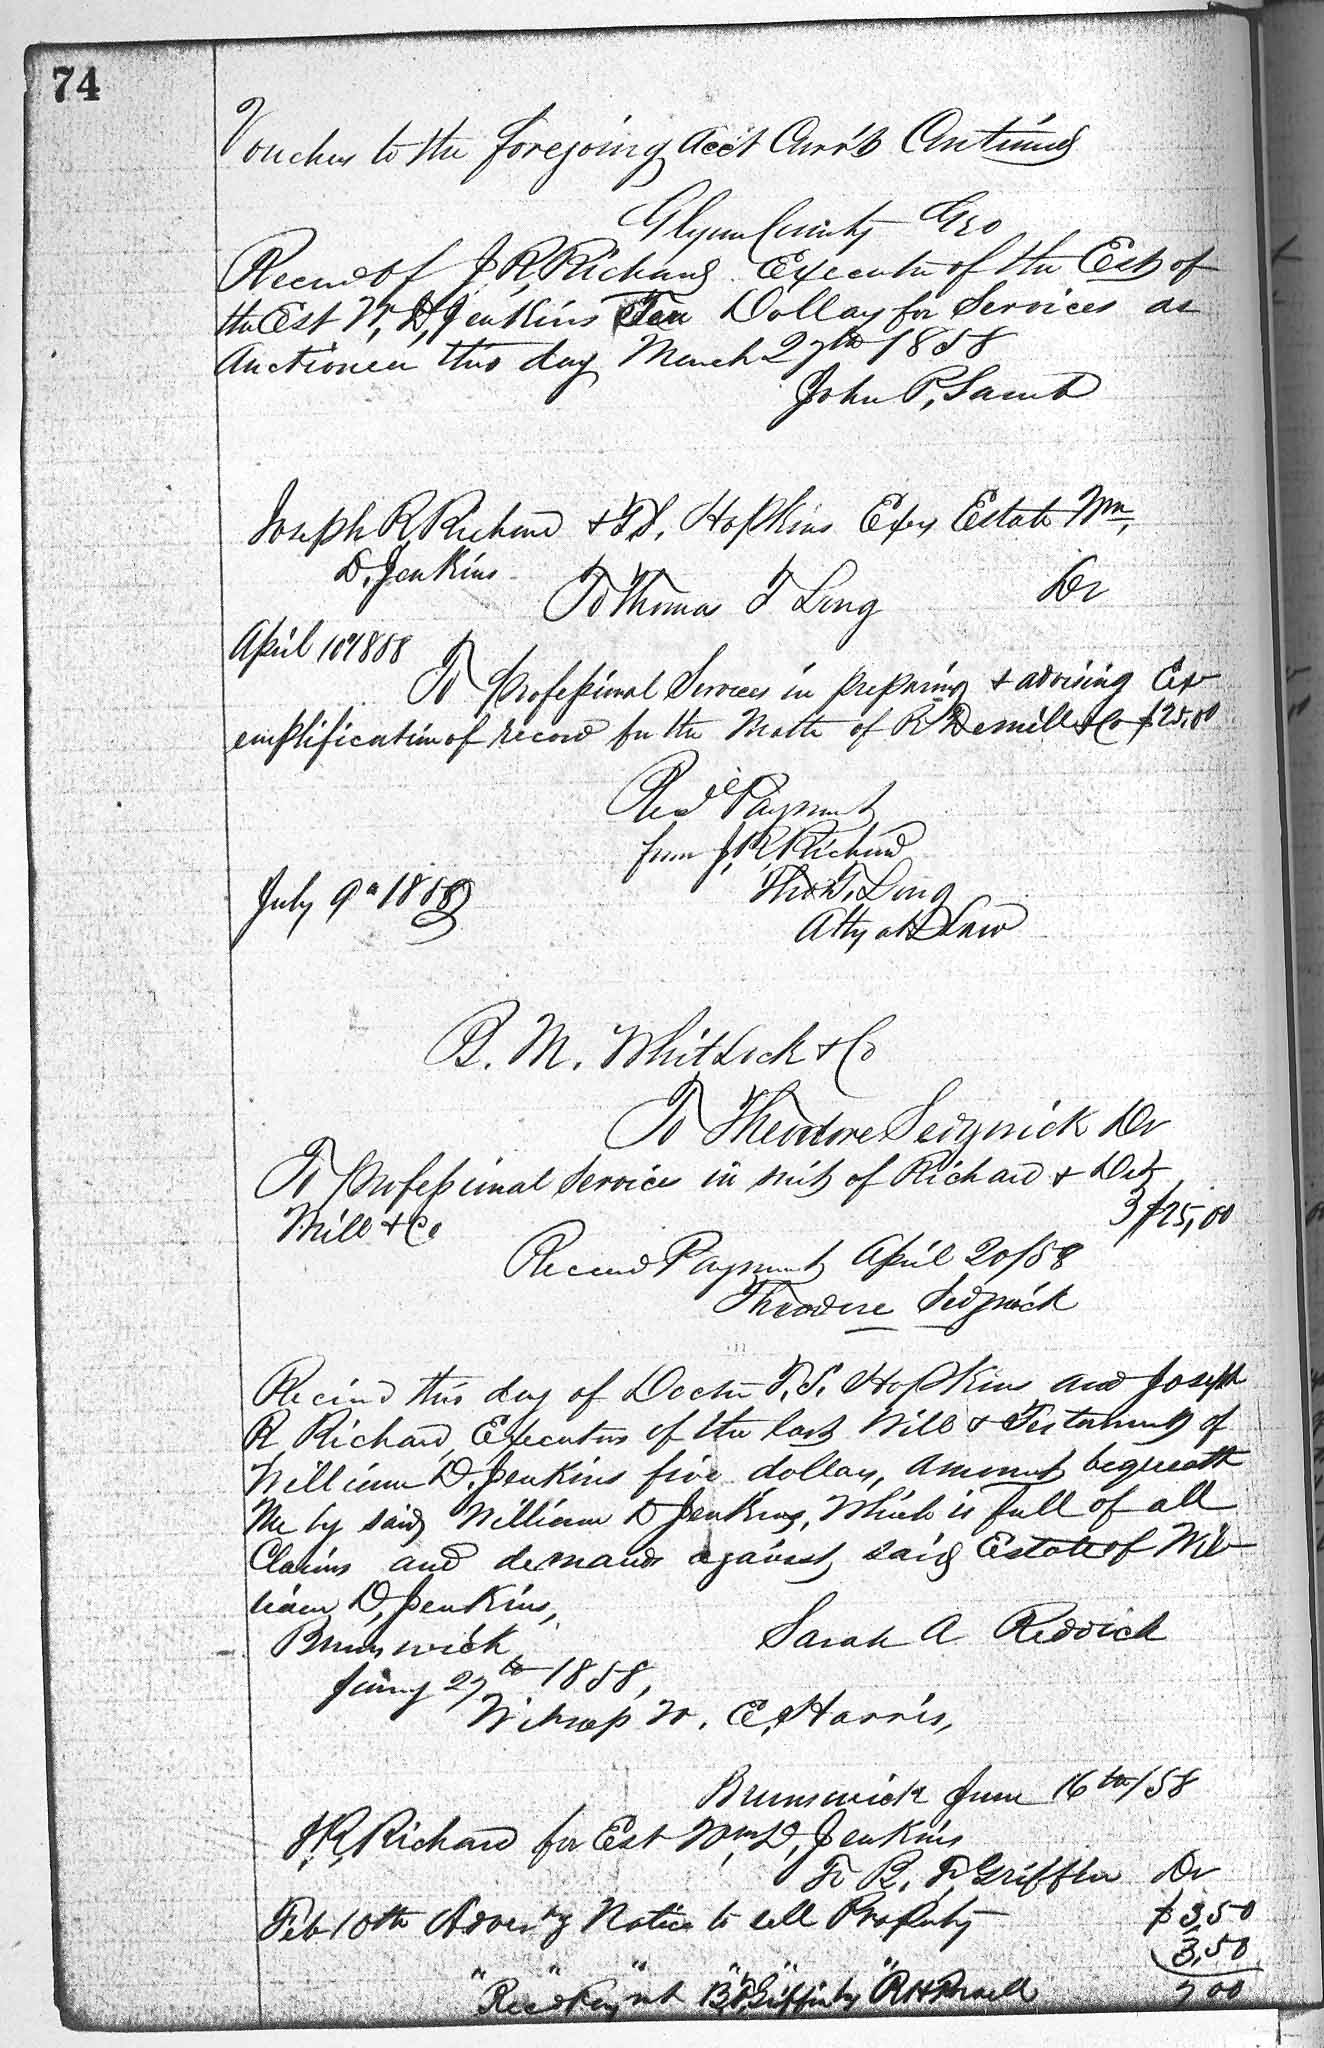 74
Vouchers to the foregoing acct Curr't Continued
Glynn County Geo
Received of J. R. Richard Executor of the Est of
the Est W. D. Jenkins Ten Dollars for Services as
Auctioneer this day March 27th 1858
John P. Lamb
Joseph R. Richard & T. S. Hopkins Exrs Estate Wm.
D. Jenkins
To Thomas T Long Dr
April 10 1858
To Professional Services in preparing & advising Ex-
emplification of record for the Matter of R Demill & Co $25,00
Recd Payment
from J. R. Richard
Thos T. Long
Atty at Law
July 9th 1858
B. M. Whitlock & Co
To Theodore Sedgwick Dr
To Professional Services in suit of Richard & Det
Mill & Co $25,00
Received Payment April 20/58
Theodore Sedgwick
Received this day of Doctor T. S. Hopkins and Joseph
R Richard, Executors of the last Will & Testament of
William D. Jenkins five dollars, amount bequeath
Me by said William D Jenkins, Which is full of all
Claims and demands against said Estate of Wil-
liam D, Jenkins,
Sarah A Reddick
Brunswick
27th 1858,
Witness W. E. Harris,
Brunswick June 16th/58
J. R. Richard for Est Wm. D. Jenkins
To B. F. Griffin Dr
Feb 10th Advers'g Notice to sell Property $3,50
3,50
7 00
"Recd Paym't B. F. Griffin by R H